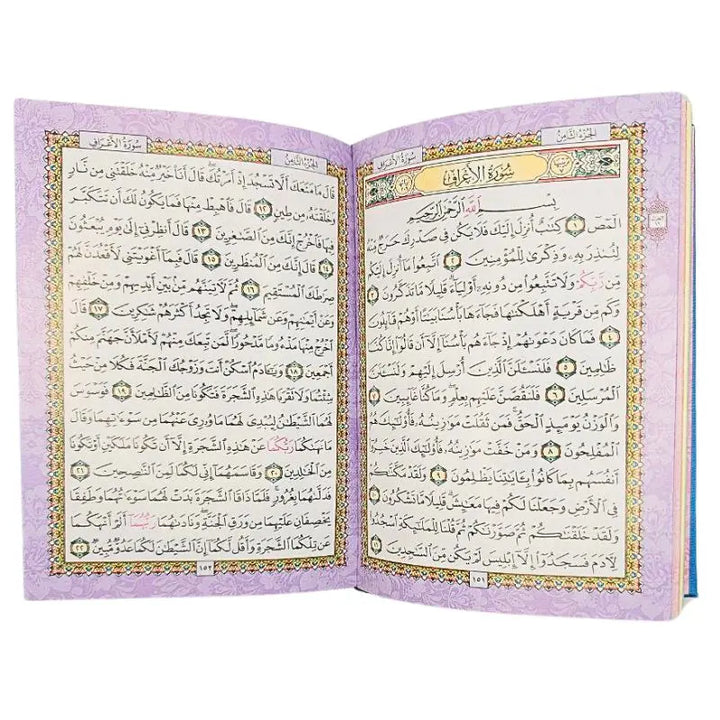 الجُزْءُ الثَّامِنُ سُورَةُ الأَعْرَافِ
سُورَةُ الأَعْرَافِ
بِسْمِ اللَّهِ الرَّحْمَٰنِ الرَّحِيمِ
الٓمٓصٓ ١ كِتَٰبٌ أُنزِلَ إِلَيْكَ فَلَا يَكُن فِي صَدْرِكَ حَرَجٌ مِّنْهُ
لِتُنذِرَ بِهِۦ وَذِكْرَىٰ لِلْمُؤْمِنِينَ ٢ ٱتَّبِعُوا۟ مَآ أُنزِلَ إِلَيْكُم
مِّن رَّبِّكُمْ وَلَا تَتَّبِعُوا۟ مِن دُونِهِۦٓ أَوْلِيَآءَ قَلِيلًا مَّا تَذَكَّرُونَ ٣
وَكَم مِّن قَرْيَةٍ أَهْلَكْنَٰهَا فَجَآءَهَا بَأْسُنَا بَيَٰتًا أَوْ هُمْ قَآئِلُونَ
٤ فَمَا كَانَ دَعْوَىٰهُمْ إِذْ جَآءَهُم بَأْسُنَآ إِلَّآ أَن قَالُوٓا۟ إِنَّا كُنَّا
ظَٰلِمِينَ ٥ فَلَنَسْـَٔلَنَّ ٱلَّذِينَ أُرْسِلَ إِلَيْهِمْ وَلَنَسْـَٔلَنَّ
ٱلْمُرْسَلِينَ ٦ فَلَنَقُصَّنَّ عَلَيْهِم بِعِلْمٍ وَمَا كُنَّا غَآئِبِينَ ٧
وَٱلْوَزْنُ يَوْمَئِذٍ ٱلْحَقُّ فَمَن ثَقُلَتْ مَوَٰزِينُهُۥ فَأُو۟لَٰٓئِكَ هُمُ
ٱلْمُفْلِحُونَ ٨ وَمَنْ خَفَّتْ مَوَٰزِينُهُۥ فَأُو۟لَٰٓئِكَ ٱلَّذِينَ خَسِرُوٓا۟
أَنفُسَهُم بِمَا كَانُوا۟ بِـَٔايَٰتِنَا يَظْلِمُونَ ٩ وَلَقَدْ مَكَّنَّٰكُمْ
فِي ٱلْأَرْضِ وَجَعَلْنَا لَكُمْ فِيهَا مَعَٰيِشَ قَلِيلًا مَّا تَشْكُرُونَ ١٠
وَلَقَدْ خَلَقْنَٰكُمْ ثُمَّ صَوَّرْنَٰكُمْ ثُمَّ قُلْنَا لِلْمَلَٰٓئِكَةِ ٱسْجُدُوا۟
لِـَٔادَمَ فَسَجَدُوٓا۟ إِلَّآ إِبْلِيسَ لَمْ يَكُن مِّنَ ٱلسَّٰجِدِينَ ١١
١٥١
الجُزْءُ الثَّامِنُ سُورَةُ الأَعْرَافِ
قَالَ مَا مَنَعَكَ أَلَّا تَسْجُدَ إِذْ أَمَرْتُكَ قَالَ أَنَا۠ خَيْرٌ مِّنْهُ خَلَقْتَنِي مِن نَّارٍ
وَخَلَقْتَهُۥ مِن طِينٍ ١٢ قَالَ فَٱهْبِطْ مِنْهَا فَمَا يَكُونُ لَكَ أَن تَتَكَبَّرَ
فِيهَا فَٱخْرُجْ إِنَّكَ مِنَ ٱلصَّٰغِرِينَ ١٣ قَالَ أَنظِرْنِيٓ إِلَىٰ يَوْمِ يُبْعَثُونَ
١٤ قَالَ إِنَّكَ مِنَ ٱلْمُنظَرِينَ ١٥ قَالَ فَبِمَآ أَغْوَيْتَنِي لَأَقْعُدَنَّ لَهُمْ
صِرَٰطَكَ ٱلْمُسْتَقِيمَ ١٦ ثُمَّ لَـَٔاتِيَنَّهُم مِّنۢ بَيْنِ أَيْدِيهِمْ وَمِنْ خَلْفِهِمْ
وَعَنْ أَيْمَٰنِهِمْ وَعَن شَمَآئِلِهِمْ وَلَا تَجِدُ أَكْثَرَهُمْ شَٰكِرِينَ ١٧ قَالَ
ٱخْرُجْ مِنْهَا مَذْءُومًا مَّدْحُورًا لَّمَن تَبِعَكَ مِنْهُمْ لَأَمْلَأَنَّ جَهَنَّمَ مِنكُمْ
أَجْمَعِينَ ١٨ وَيَٰٓـَٔادَمُ ٱسْكُنْ أَنتَ وَزَوْجُكَ ٱلْجَنَّةَ فَكُلَا مِنْ حَيْثُ
شِئْتُمَا وَلَا تَقْرَبَا هَٰذِهِ ٱلشَّجَرَةَ فَتَكُونَا مِنَ ٱلظَّٰلِمِينَ ١٩ فَوَسْوَسَ
لَهُمَا ٱلشَّيْطَٰنُ لِيُبْدِيَ لَهُمَا مَا وُۥرِيَ عَنْهُمَا مِن سَوْءَٰتِهِمَا وَقَالَ
مَا نَهَىٰكُمَا رَبُّكُمَا عَنْ هَٰذِهِ ٱلشَّجَرَةِ إِلَّآ أَن تَكُونَا مَلَكَيْنِ أَوْ تَكُونَا
مِنَ ٱلْخَٰلِدِينَ ٢٠ وَقَاسَمَهُمَآ إِنِّي لَكُمَا لَمِنَ ٱلنَّٰصِحِينَ ٢١
فَدَلَّىٰهُمَا بِغُرُورٍ فَلَمَّا ذَاقَا ٱلشَّجَرَةَ بَدَتْ لَهُمَا سَوْءَٰتُهُمَا وَطَفِقَا
يَخْصِفَانِ عَلَيْهِمَا مِن وَرَقِ ٱلْجَنَّةِ وَنَادَىٰهُمَا رَبُّهُمَآ أَلَمْ أَنْهَكُمَا
عَن تِلْكُمَا ٱلشَّجَرَةِ وَأَقُل لَّكُمَآ إِنَّ ٱلشَّيْطَٰنَ لَكُمَا عَدُوٌّ مُّبِينٌ ٢٢
١٥٢